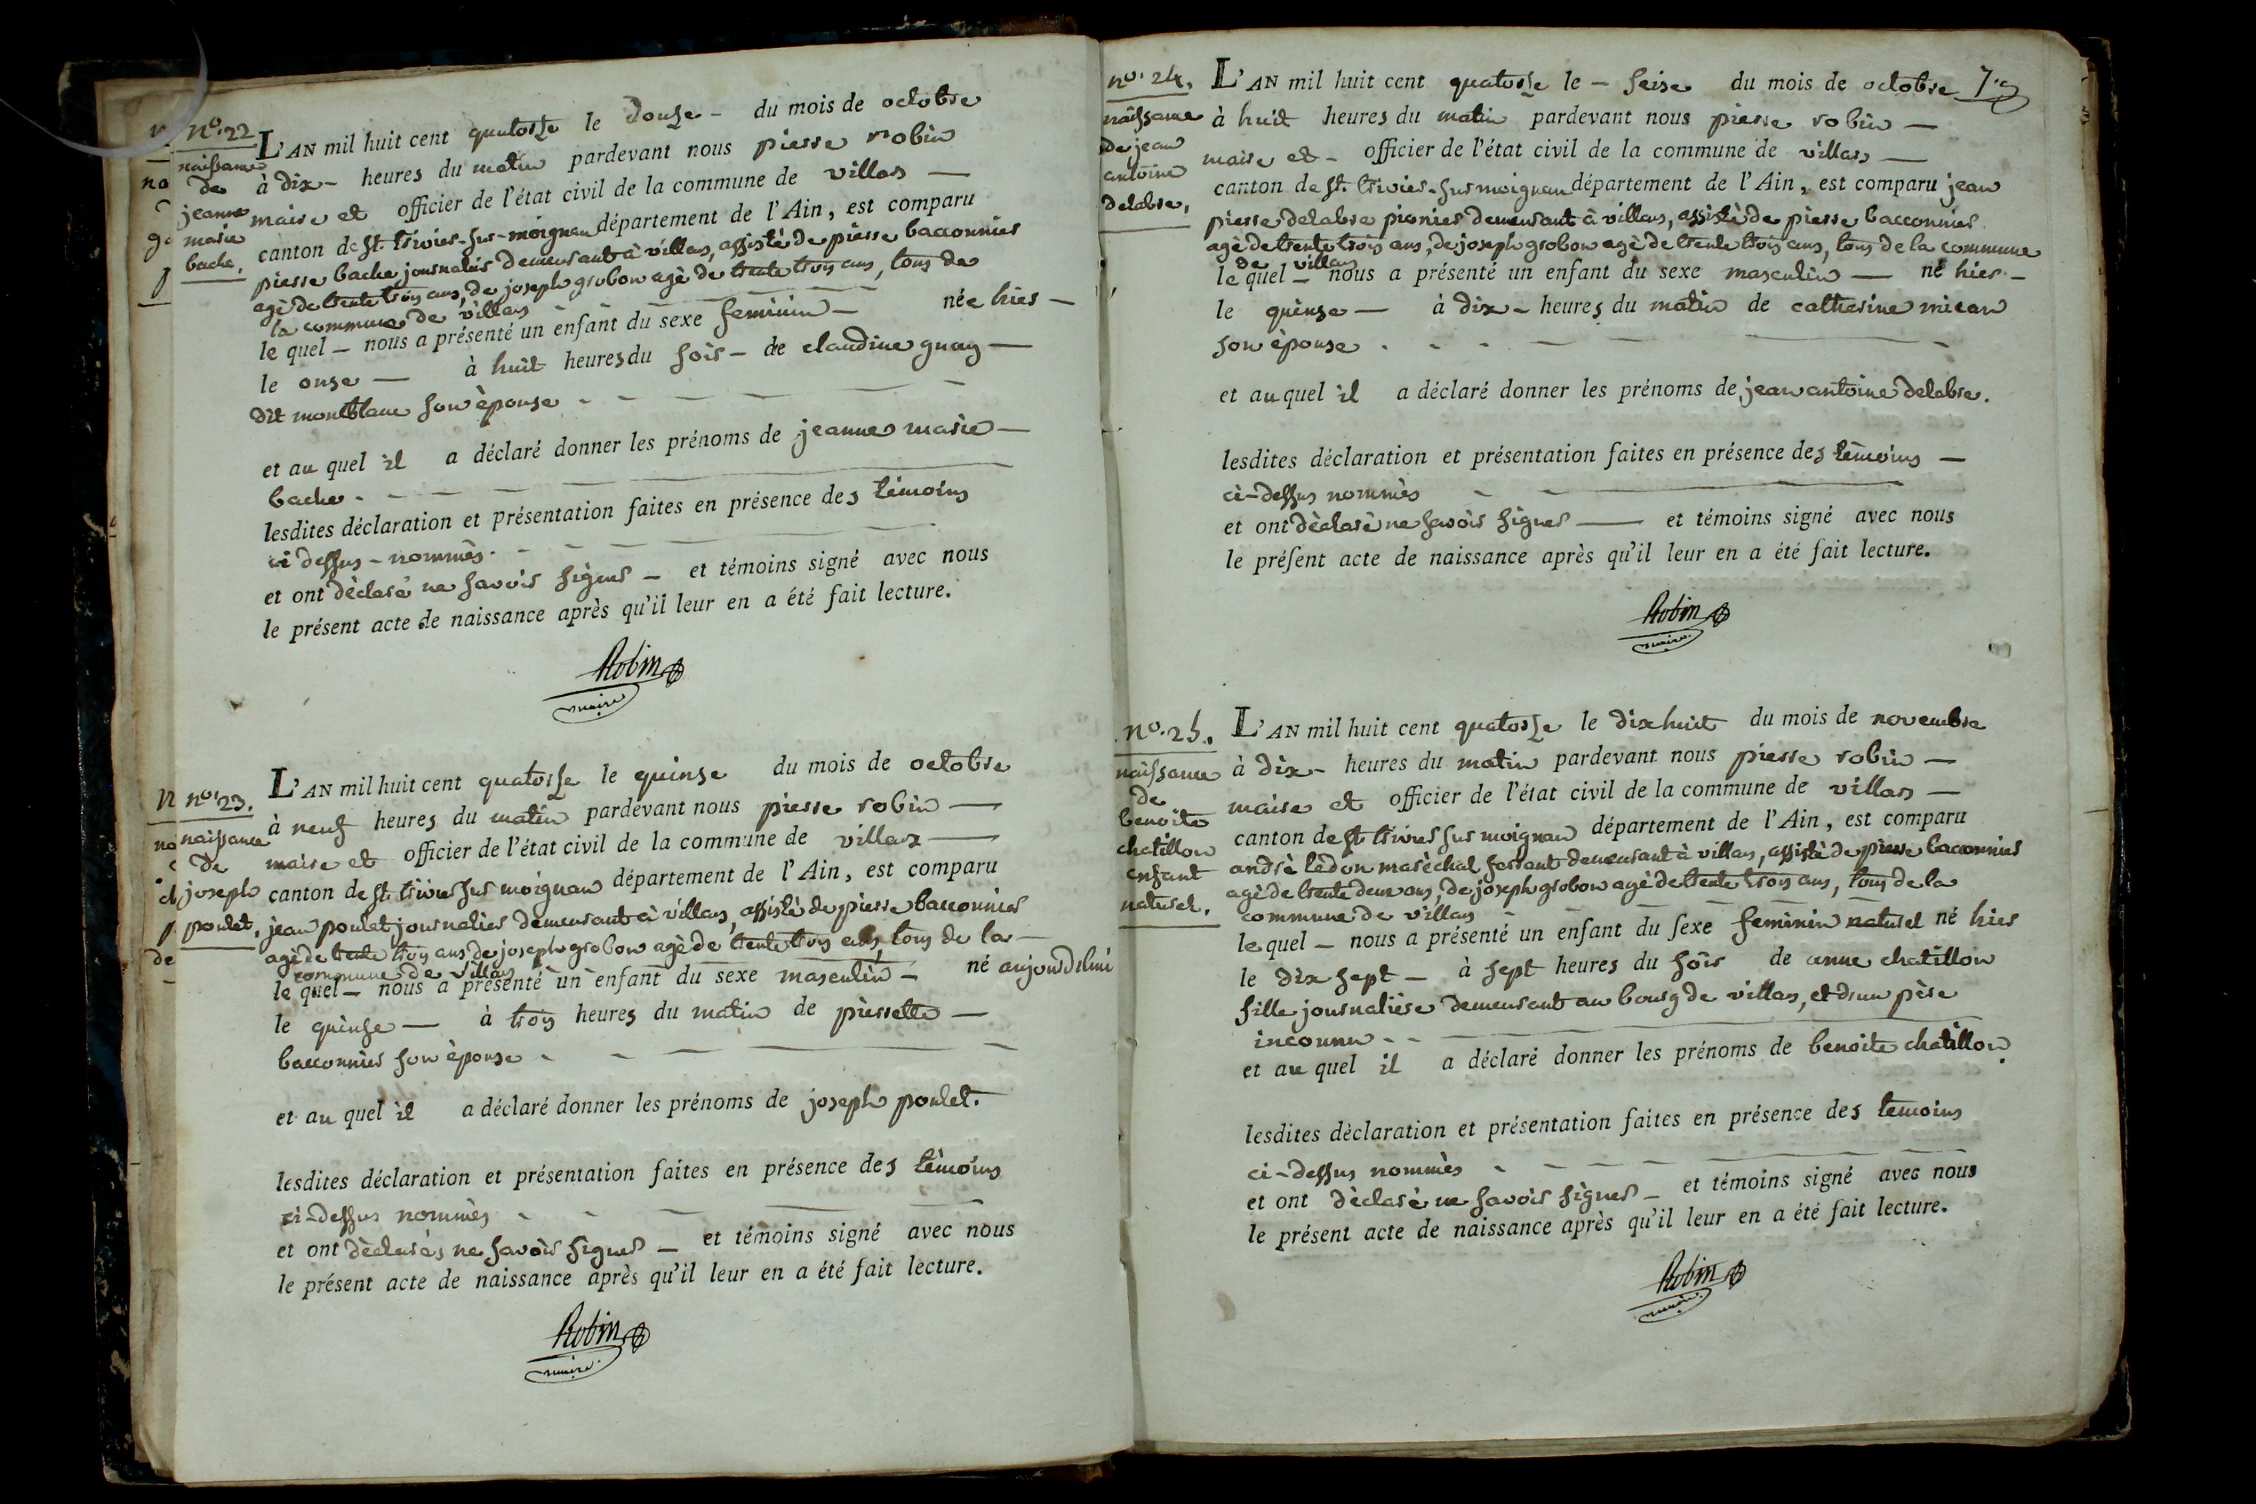 no. 22
naissance
de
jeanne
marie
bache,
L'AN mil huit cent quatorze le douze – du mois de octobre
à dix – heures du matin pardevant nous pierre robin
maire et officier de l'état civil de la commune de villars —
canton de st. trivier-sur-moignan département de l'Ain, est comparu
pierre bache journalier demeurant à villars, assisté de pierre bacconnier
agé de trente trois ans, de joseph grobon agé de trente trois ans, tous de
la commune de villars
le quel – nous a présenté un enfant du sexe feminin – née hier –
le onze — à huit heures du soir – de claudine guay —
dit montblanc son épouse
et au quel il a déclaré donner les prénoms de jeanne marie —
bache.
lesdites déclaration et présentation faites en présence des témoins
ci dessus – nommés.
et ont déclaré ne savoir signer – et témoins signé avec nous
le présent acte de naissance après qu'il leur en a été fait lecture.
Robin
maire
no. 23.
naissance
de
joseph
poulet,
L'AN mil huit cent quatorze le quinze du mois de octobre
à neuf heures du matin pardevant nous pierre robin —
maire et officier de l'état civil de la commune de villars —
canton de st. trivier sur moignan département de l'Ain, est comparu
jean poulet journalier demeurant à villars, assisté de pierre bacconnier
agé de trente trois ans de joseph grobon agé de trente trois ans, tous de la
commune de villars
le quel – nous a présenté un enfant du sexe masculin – né aujourd'hui
le quinze — à trois heures du matin de pierrette —
bacconnier son épouse
et au quel il a déclaré donner les prénoms de joseph poulet.
lesdites déclaration et présentation faites en présence des témoins
ci-dessus nommés
et ont déclarés ne savoir signer – et témoins signé avec nous
le présent acte de naissance après qu'il leur en a été fait lecture.
Robin
maire.
7.e
no. 24,
naissance
de jean
antoine
delabre,
L'AN mil huit cent quatorze le – seize du mois de octobre
à huit heures du matin pardevant nous pierre robin —
maire et – officier de l'état civil de la commune de villars —
canton de st. trivier-sur moignan département de l'Ain, est comparu jean
pierre delabre pionier demeurant à villars, assisté de pierre bacconnier
agé de trente trois ans, de joseph grobon agé de trente trois ans, tous de la commune
de villars
le quel – nous a présenté un enfant du sexe masculin — né hier –
le quinze — à dix – heures du matin de catherine
son épouse
et au quel il a déclaré donner les prénoms de jean antoine delabre.
lesdites déclaration et présentation faites en présence des témoins —
ci-dessus nommés
et ont déclaré ne savoir signer — et témoins signé avec nous
le présent acte de naissance après qu'il leur en a été fait lecture.
Robin
maire.
no. 25,
naissance
de
benoite
chatillon
enfant
naturel,
L'AN mil huit cent quatorze le dix huit du mois de novembre
à dix – heures du matin pardevant nous pierre robin —
maire et officier de l'état civil de la commune de villars —
canton de st trivier sur moignan département de l'Ain, est comparu
andré ledon maréchal ferrant demeurant à villars, assisté de pierre bacconnier
agé de trente deux ans, de joseph grobon agé de trente trois ans, tous de la
commune de villars
le quel – nous a présenté un enfant du sexe feminin naturel né hier
le dix sept – à sept heures du soir de anne chatillon
fille journaliere demeurant au bourg de villars, et d'un père
inconnu
et au quel il a déclaré donner les prénoms de benoite chatillon.
lesdites déclaration et présentation faites en présence des temoins
ci-dessus nommés
et ont déclaré ne savoir signer – et témoins signé avec nous
le présent acte de naissance après qu'il leur en a été fait lecture.
Robin
maire.